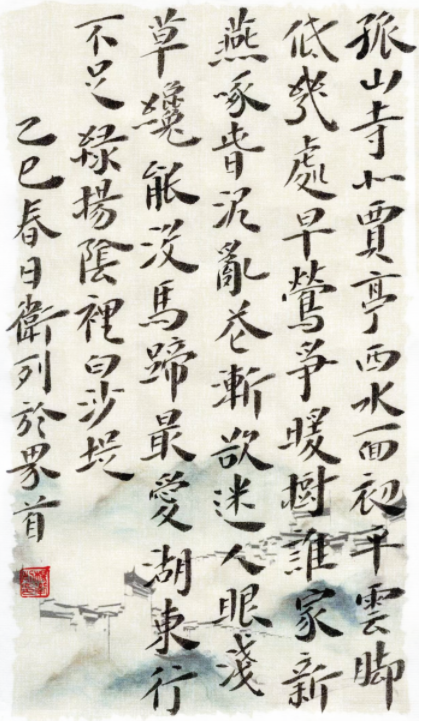 孤山寺北賈亭西水面初平雲脚
低幾處早鶯爭暖樹誰家新
燕啄春泥亂花漸欲迷人眼淺
草纔能没馬蹄最愛湖東行
不足緑楊陰裡白沙堤
乙巳春日衛列於界首